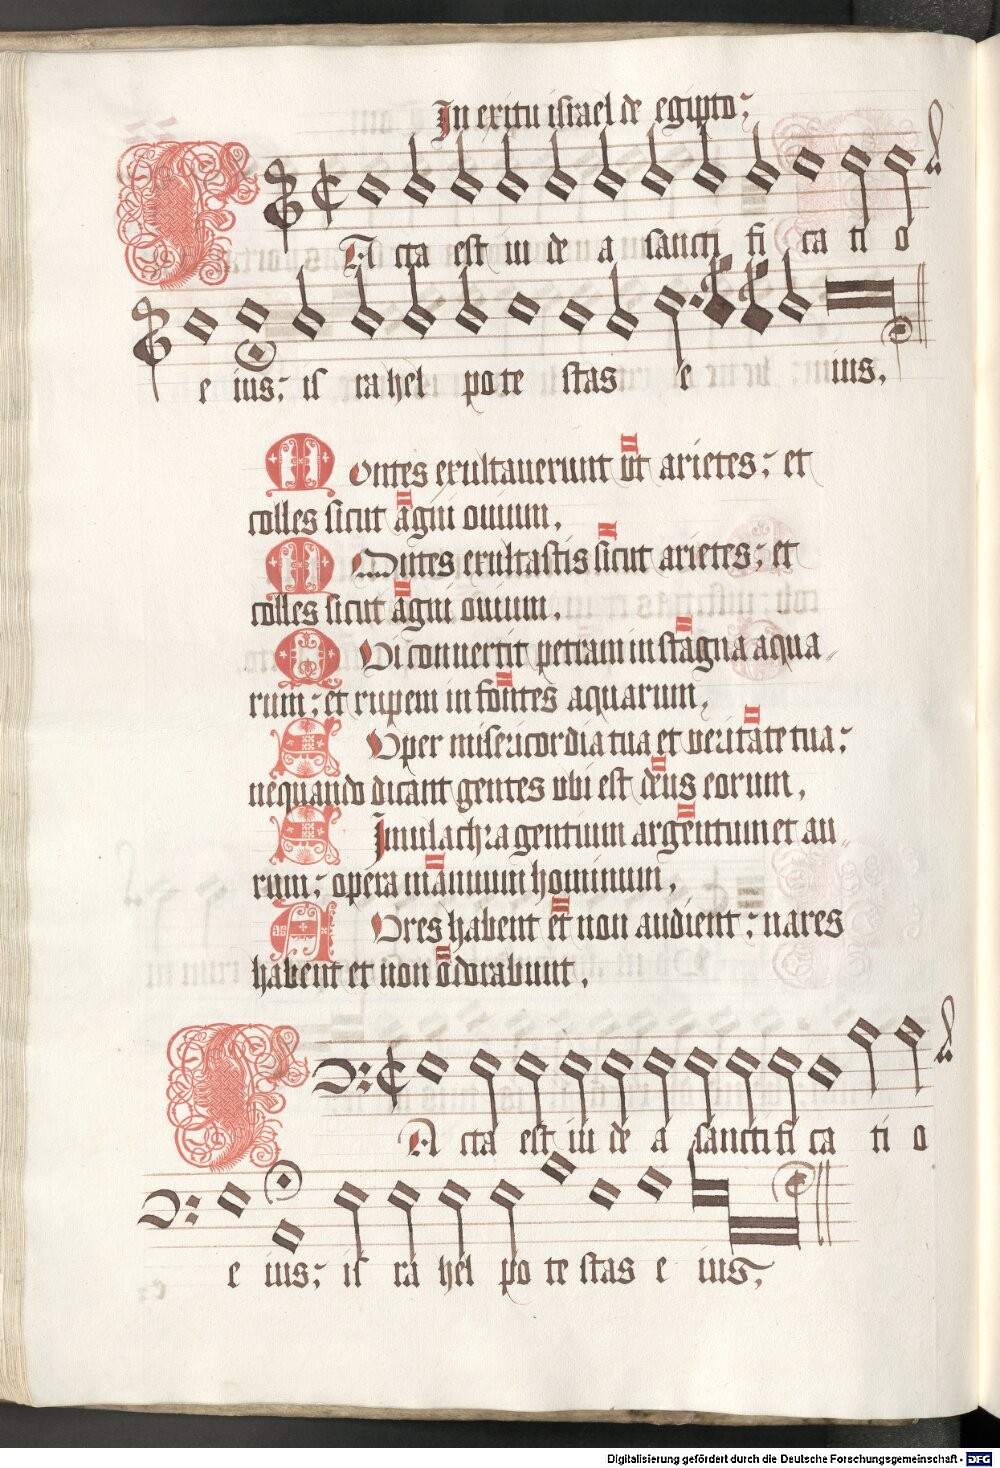 In exitu israel de egipto:
FActa est iu de a sancti fi ca ti o
e ius: is ra hel po te stas e ius.
Montes exultauerunt vt arietes: et
colles sicut agni ouium.
Montes exultastis sicut arietes: et
colles sicut agni ouium.
Qui conuertit petram in stagna aqua-
rum: et rupem in fontes aquarum.
Super misericordia tua et veritate tua:
nequando dicant gentes vbi est deus eorum.
Simulachra gentium argentum et au-
rum: opera manuum hominum.
Aures habent et non audient: nares
habent et non odorabunt.
FActa est iu de a sancti fi ca ti o
e ius: is ra hel po te stas e ius.
Digitalisierung gefördert durch die Deutsche Forschungsgemeinschaft - DFG